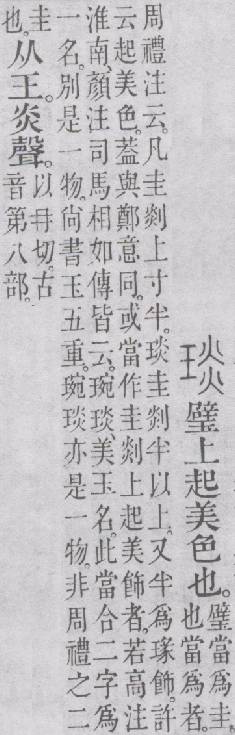 琰 璧上起美色也。璧當爲圭。
也當爲者。
周禮注云。凡圭剡上寸半。琰圭剡半以上。又半爲瑑飾。許
云起美色。葢與鄭意同。或當作圭剡上起美飾者。若高注
淮南、顏注司馬相如傳皆云。琬琰、美玉名。此當合二字爲
一名。別是一物。尙書玉五重。琬琰亦是一物。非周禮之二
圭
也。从王。炎聲。以冄切。古
音第八部。